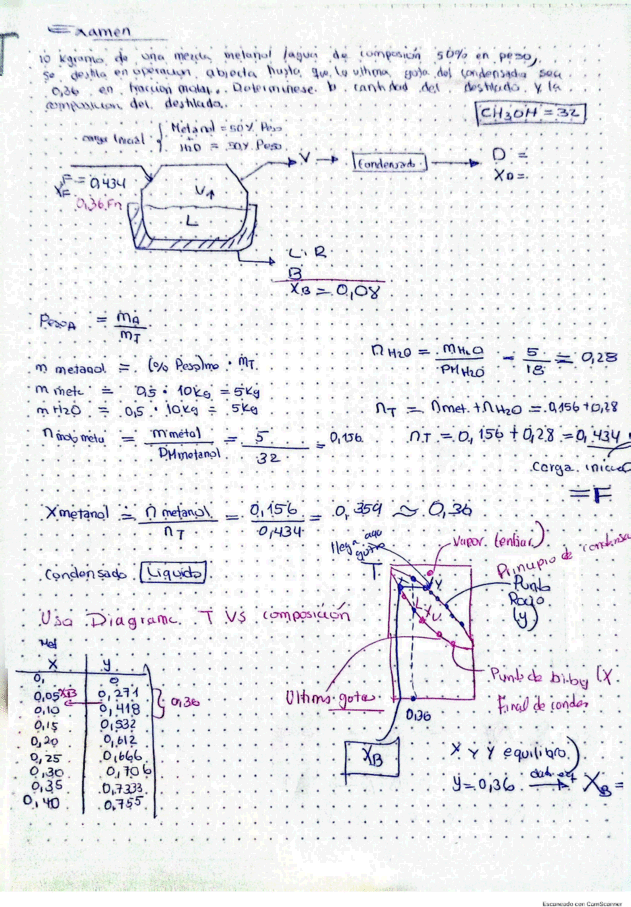 Examen
10 kgramo de una mezcla metanol /agua de composión 50% en peso,
se destila en operación abierta hasta que la ultima gota del condensado sea
0,36 en fracción molar. Determínese la cantidad del destilado y la
composicion del destilado.
CH3OH = 32
carga Inicial { Metanol = 50% Peso
H2O = 50% Peso
F = 0,434
XF
0,36 Fn
V
L
V → Condensado → D =
XD =
L. R
B
XB = 0,08
Peso A = mA / mT
m metanol = (% Peso)mo · mT
m metc = 0,5 · 10kg = 5kg
m H2O = 0,5 · 10kg = 5kg
n metu = m metal / PM metanol = 5 / 32 = 0,156
n H2O = m H2O / PM H2O = 5 / 18 = 0,28
nT = nmet. + nH2O = 0,156 + 0,28
nT = 0,156 + 0,28 = 0,434
carga inicia
= F
X metanol = n metanol / nT = 0,156 / 0,434 = 0,359 ≈ 0,36
Condensado Liquido
Usa Diagrama T VS composición
llega aqu
gota
Vapor. (enfiar)
Principio de condensa
T
X Y
L
V
Punto
Rocio
(y)
Punto de bu
Final de conden
Ultima gota
0,36
XB
X y Y equilibro)
y = 0,36 → XB =
Met
X Y
0, 0
0,05 XB 0,271
0,10 0,418 } 0,36
0,15 0,532
0,20 0,612
0,25 0,666
0,30 0,706
0,35 0,7333
0,40 0,755
Escaneado con CamScanner